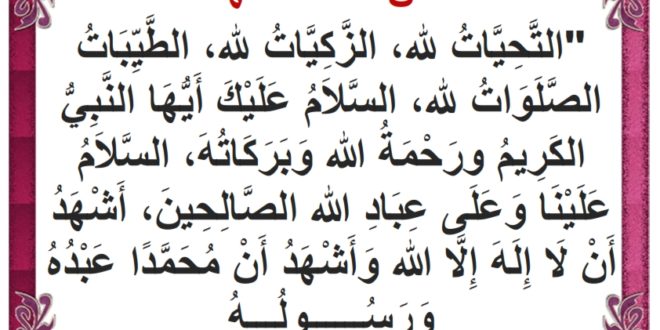 "التَّحِيَّاتُ لله، الزَّكِيَّاتُ لله، الطَّيِّبَاتُ
الصَّلَوَاتُ لله، السَّلَامُ عَلَيْكَ أَيُّهَا النَّبِيُّ
الكَرِيمُ ورَحْمَةُ الله وَبَرَكَاتُهَ، السَّلَامُ
عَلَيْنَا وَعَلَى عِبَادِ الله الصَّالِحِينَ، أَشْهَدُ
أَنْ لَا إِلَهَ إِلَّا الله وَأَشْهَدُ أَنْ مُحَمَّدًا عَبْدُهُ
وَرَسُـــولُـــهُ